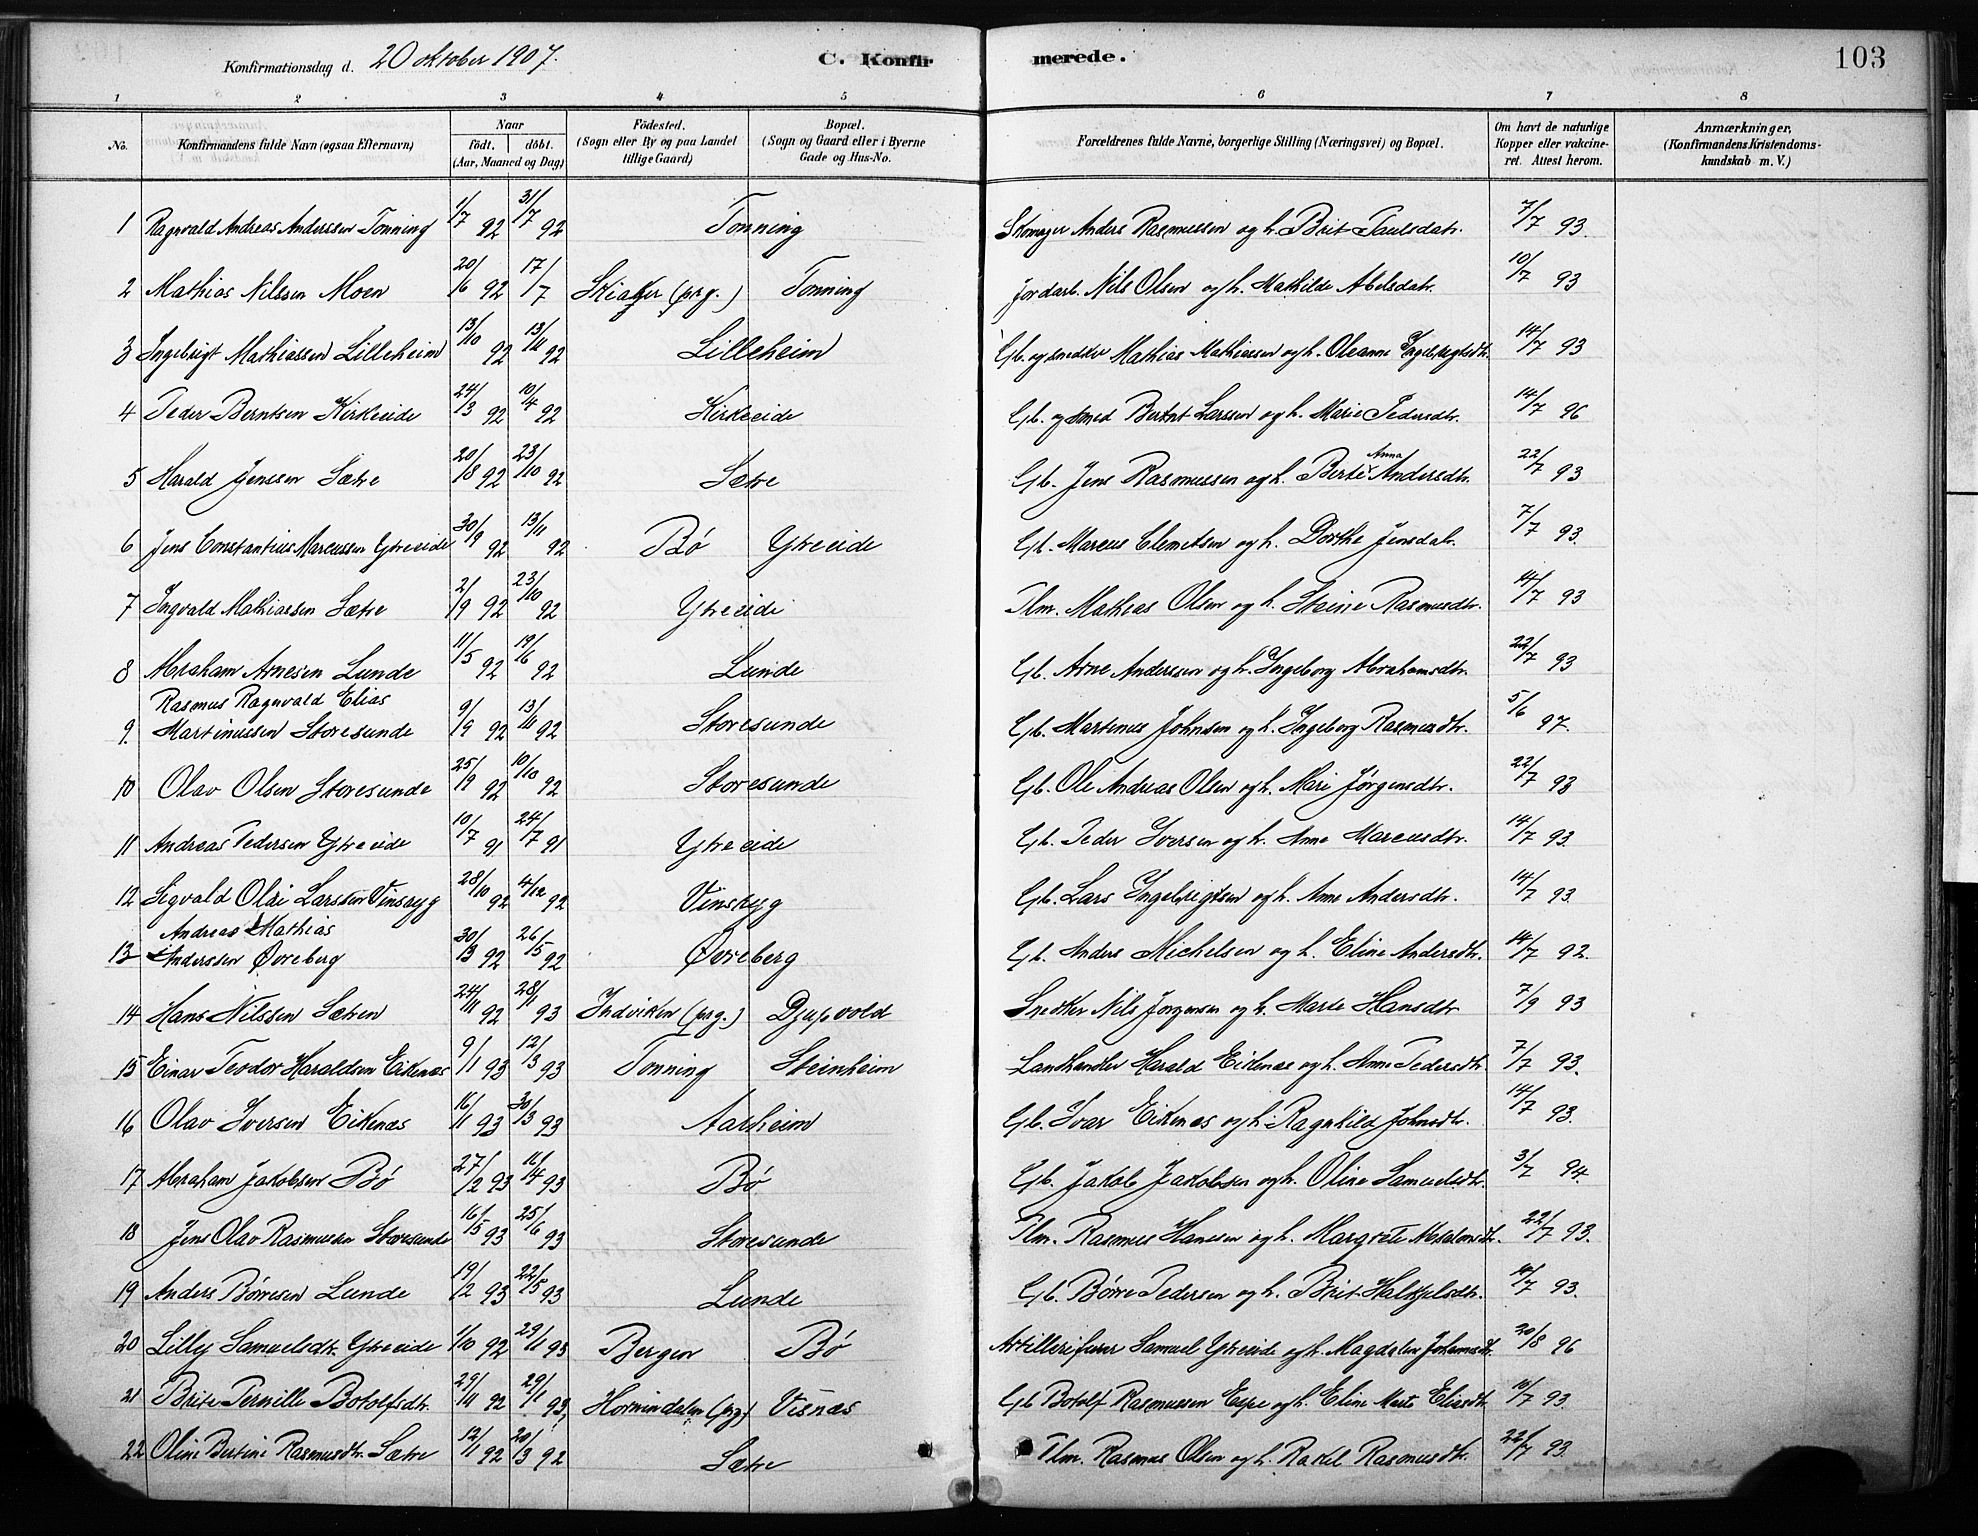 Konfirmationsdag d. 20 oktober 1907.
C. Konfirmerede.
103
1 2 3 4 5 6 7 8
No.
Konfirmandens fulde Navn (ogsaa Efternavn)
Naar
födt. döbt.
(Aar, Maaned og Dag)
Födested.
(Sogn eller By og paa Landet
tillige Gaard)
Bopæl.
(Sogn og Gaard eller i Byerne
Gade og Hus-No.
Forældrenes fulde Navne, borgerlige Stilling (Næringsvei) og Bopæl.
Om havt de naturlige
Kopper eller vakcine-
ret. Attest herom.
Anmærkninger,
(Konfirmandens Kristendoms-
kundskab m. V.)
1 Ragnvald Andreas Anderssen Tonning 1/7 92 31/7 92 Tonning Skomager Anders Rasmussen og h. Brit Paulsdatr. 7/7 93.
2 Mathias Nilssen Moen 20/6 92 17/7 Skiaker (prg.) Tonning Jordarb. Nils Olsen og h. Mathilde Abelsdatr. 10/7 93
3 Ingebrigt Mathiassen Lilleheim 13/10 92 13/11 92 Lilleheim Gb. og snedker Mathias Mathiassen og h. Oleanne Ingebrigtsdtr. 14/7 93
4 Peder Berntsen Kirkeeide 24/3 92 10/4 92 Kirkeeide Gb. og smed Bernt Larssen og h. Marie Pedersdtr. 14/7 96
5 Harald Jenssen Sætre 20/8 92 23/10 92 Sætre Gb. Jens Rasmussen og h. Berte Anna Andersdtr. 22/7 93
6 Jens Constantius Marcussen Ytreeide 30/9 92 13/11 92 Bö Ytreeide Gb. Marcus Clemetsen og h. Dorthe Jensdatr. 7/7 93.
7 Ingvald Mathiassen Sætre 2/9 92 23/10 92 Ytreeide Plm. Mathias Olsen og h. Steine Rasmusdtr. 14/7 93
8 Abraham Arnesen Lunde 11/5 92 19/6 92 Lunde Gb. Arne Anderssen og h. Ingeborg Abrahamsdtr. 22/7 93
Rasmus Ragnvald Elias
9. Martinussen Storesunde 9/9 92 13/11 92 Storesunde Gb. Martinus Johnsen og h. Ingeborg Rasmusdtr. 5/6 97.
10 Olav Olsen Storesunde 25/9 92 10/10 92 Storesunde Gb. Ole Andreas Olsen og h. Mari Jørgensdtr. 22/7 93
11 Andreas Pedersen Ytreeide 10/7 91 24/7 91 Ytreeide Gb. Peder Iversen og h. Anne Marcusdtr. 14/7 93.
12 Sigvald Olai Larssen Vinsryg 28/10 92 4/12 92 Vinsryg Gb. Lars Ingebrigtsen og h. Anne Andersdtr. 14/7 93.
Andreas Mathias
13 Anderssen Øvreberg 30/3 92 26/5 92 Øvreberg Gb. Anders Michelsen og h. Eline Andersdtr. 14/7 92.
14 Hans Nilssen Sætren 24/11 92 28/1 93 Indviken (prg.) Djupvold Snedker Nils Jorgensen og h. Marte Hansdtr 7/9 93
15 Einar Teodor Haraldsen Eikenæs 9/1 93 12/3 93 Tonning Steinheim Landhandler Harald Eikenæs og h. Anne Pedersdtr. 7/7 93.
16 Olav Iversen Eikenæs 16/1 93 30/3 93 Aarheim Gb. Ivar Eikenæs og h. Ragnhild Johnsdtr. 14/7 93.
17 Abraham Jakobsen Bö 27/2 93 16/4 93 Bö Gb. Jakob Jakobsen og h. Oline Samuelsdtr. 3/7 94.
18 Jens Olav Rasmussen Storesunde 16/5 93 25/6 93 Storesunde Plm. Rasmus Hansen og h. Margrete Absalonsdtr. 22/7 93.
19 Anders Børresen Lunde 19/2 93 22/5 93 Lunde Gb. Børre Pedersen og h. Brit Halkjelsdtr. 14/7 93.
20 Lilly Samuelsdtr. Ytreeide 1/10 92 29/1 93 Bergen Bö Artillerifurer Samuel Ytreeide og h. Magdalen Johansdtr. 20/8 96
21 Brite Pernille Botolfsdtr. 29/11 92 29/1 93. Hornindalen (prg) Visnæs Gb Botolf Rasmussen Espe og h. Eline Marte Eliasdtr. 10/7 93.
22 Oline Bertine Rasmusdtr. Sætre 12/1 92 20/3 92 Sætre Plm. Rasmus Olsen og h. Rakel Rasmusdtr. 22/7 93.